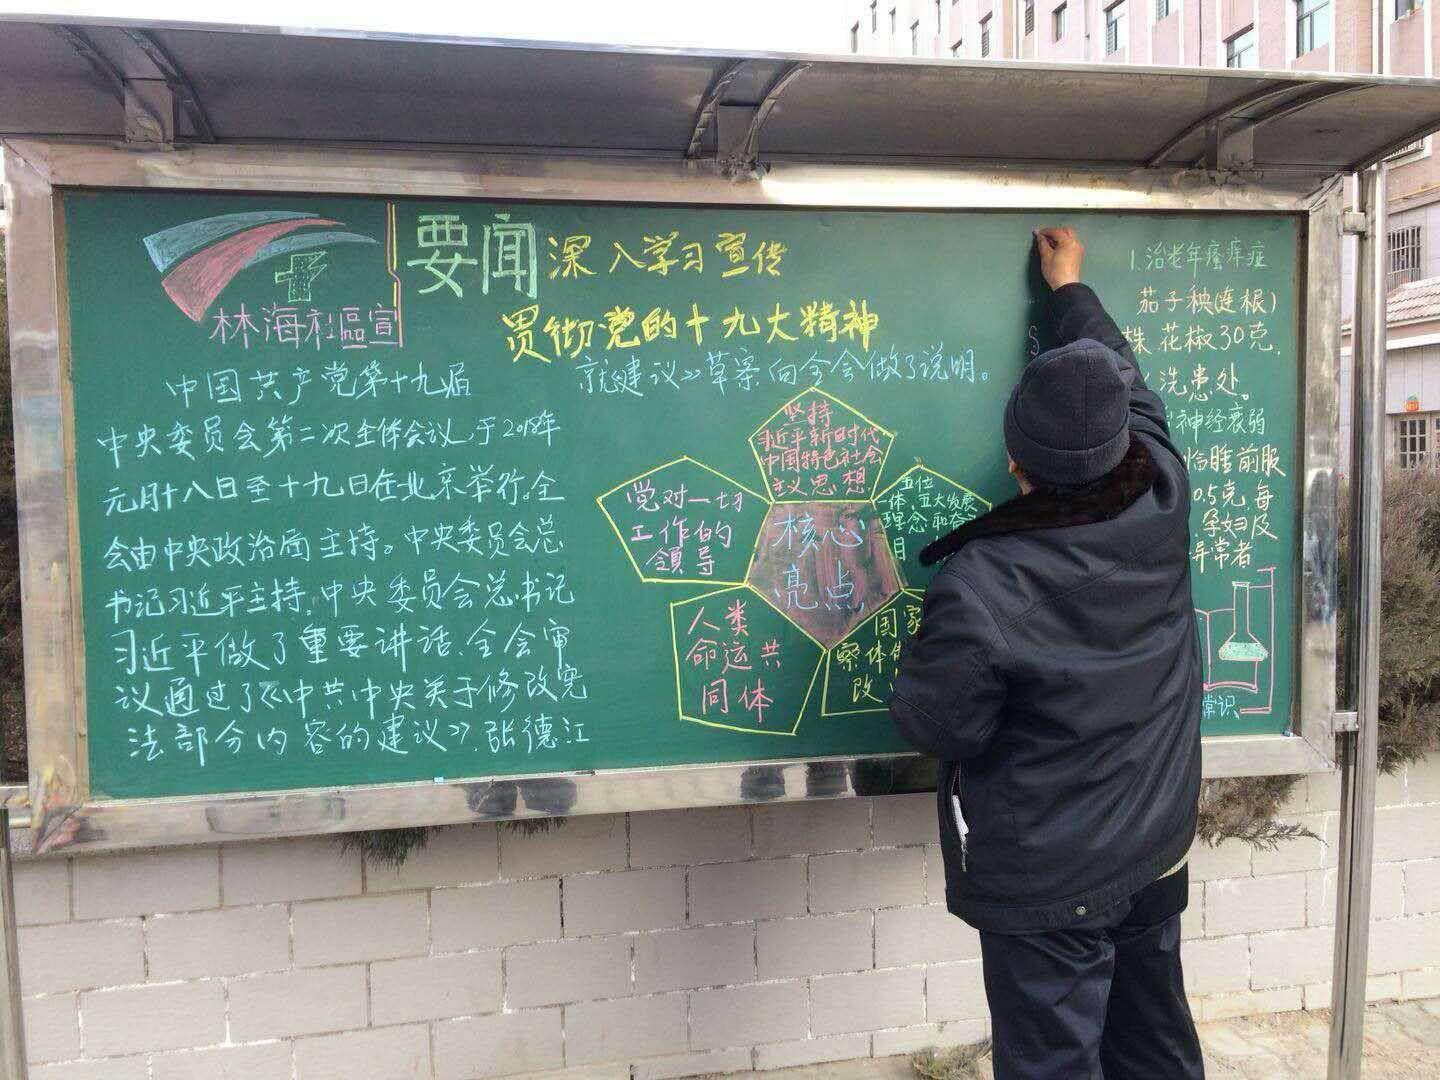 林海社區宣
要闻
深入学习宣传
贯彻党的十九大精神
中国共产党第十九届
中央委员会第二次全体会议,于2018年
元月十八日至十九日在北京举行。全
会由中央政治局主持。中央委员会总
书记习近平主持,中央委员会总书记
习近平做了重要讲话,全会审
议通过了《中共中央关于修改宪
法部分内容的建议》,张德江
就《建议》草案向全会做了说明。
坚持
习近平新时代
中国特色社会
主义思想
党对一切
工作的
領导
核心
亮点
五位
一体、五大发展
理念和奋
目
人类
命运共
同体
国家
察体
改
S
1.治老年瘙痒症
茄子秧(连根)
株花椒30克,
洗患处。
神经衰弱
临睡前服
0.5克,每
孕妇及
异常者
常识